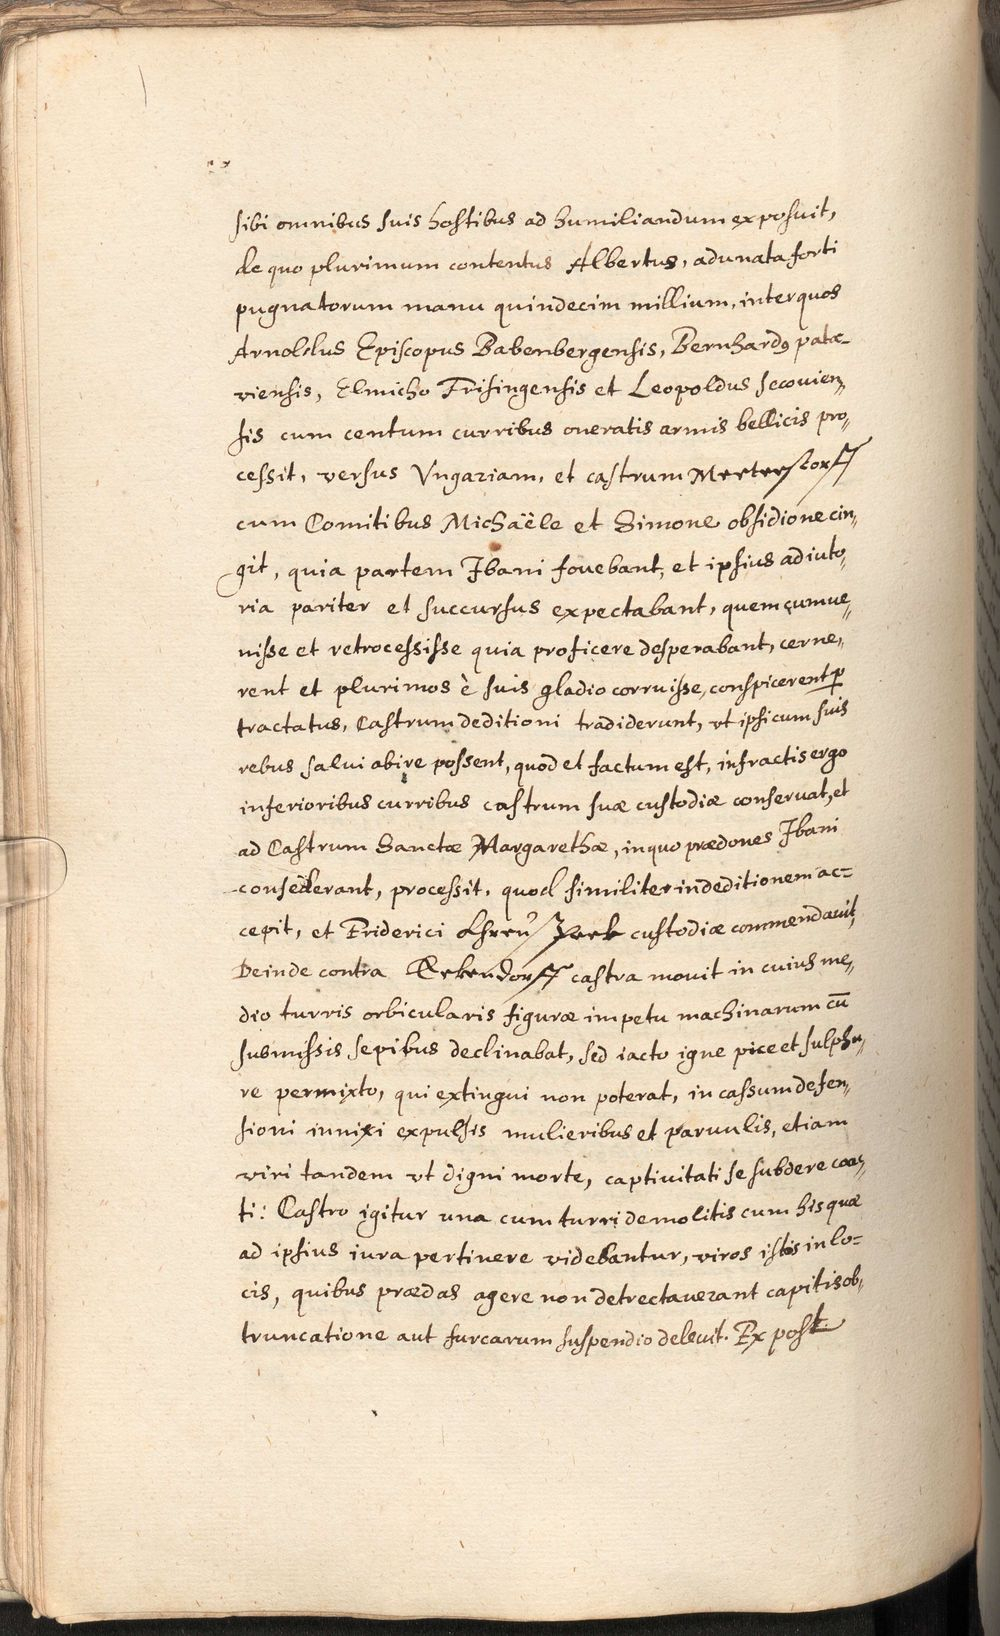 sibi omnibus suis hostibus ad humiliandum exposuit,
de quo plurimum contentus Albertus, adunata forti
pugnatorum manu quindecim millium, inter quos
Arnoldus Episcopus Babenbergensis, Bernhardꝯ pata-
viensis, Elmicho Frisingensis et Leopoldus Secovien,,
sis cum centum curribus oneratis armis bellicis pro,,
cessit, versus Vngariam, et castrum Merterstorff
cum Comitibus Michaële et Simone obsidione cin,,
git, quia partem Ibani fovebant, et ipsius adiuto,,
ria pariter et succursus expectabant, quem cum ve,,
nisse et retrocessisse quia proficere desperabant, cerne,,
rent et plurimos è suis gladio corruisse, conspicerent ꝑ
tractatus, Castrum deditioni tradiderunt, vt ipsi cum suis
rebus salui abire possent, quod et factum est, infractis ergo
inferioribus curribus castrum suæ custodiæ conseruat, et
ad Castrum Sanctæ Margarethæ, in quo prædones Ibani
consederant, processit, quod similiter in deditionem ac=
cepit, et Friderici custodiæ commendauit,
Deinde contra Rekendorff castra movit in cuius me,,
dio turris orbicularis figuræ impetu machinarum cū
submissis sepibus declinabat, sed iacto igne pice et sulphu,,
re permixto, qui extingui non poterat, in cassum defen,,
sioni innixi expulsis mulieribus et paruulis, etiam
viri tandem vt digni morte, captiuitati se subdere coac,,
ti: Castro igitur una cum turri demolitis cum his quæ
ad ipsius iura pertinere videbantur, viros istis in lo=
cis, quibus prædas agere non detrectauerant capitis ob,,
truncatione aut furcarum suspendio deleuit. Ex post